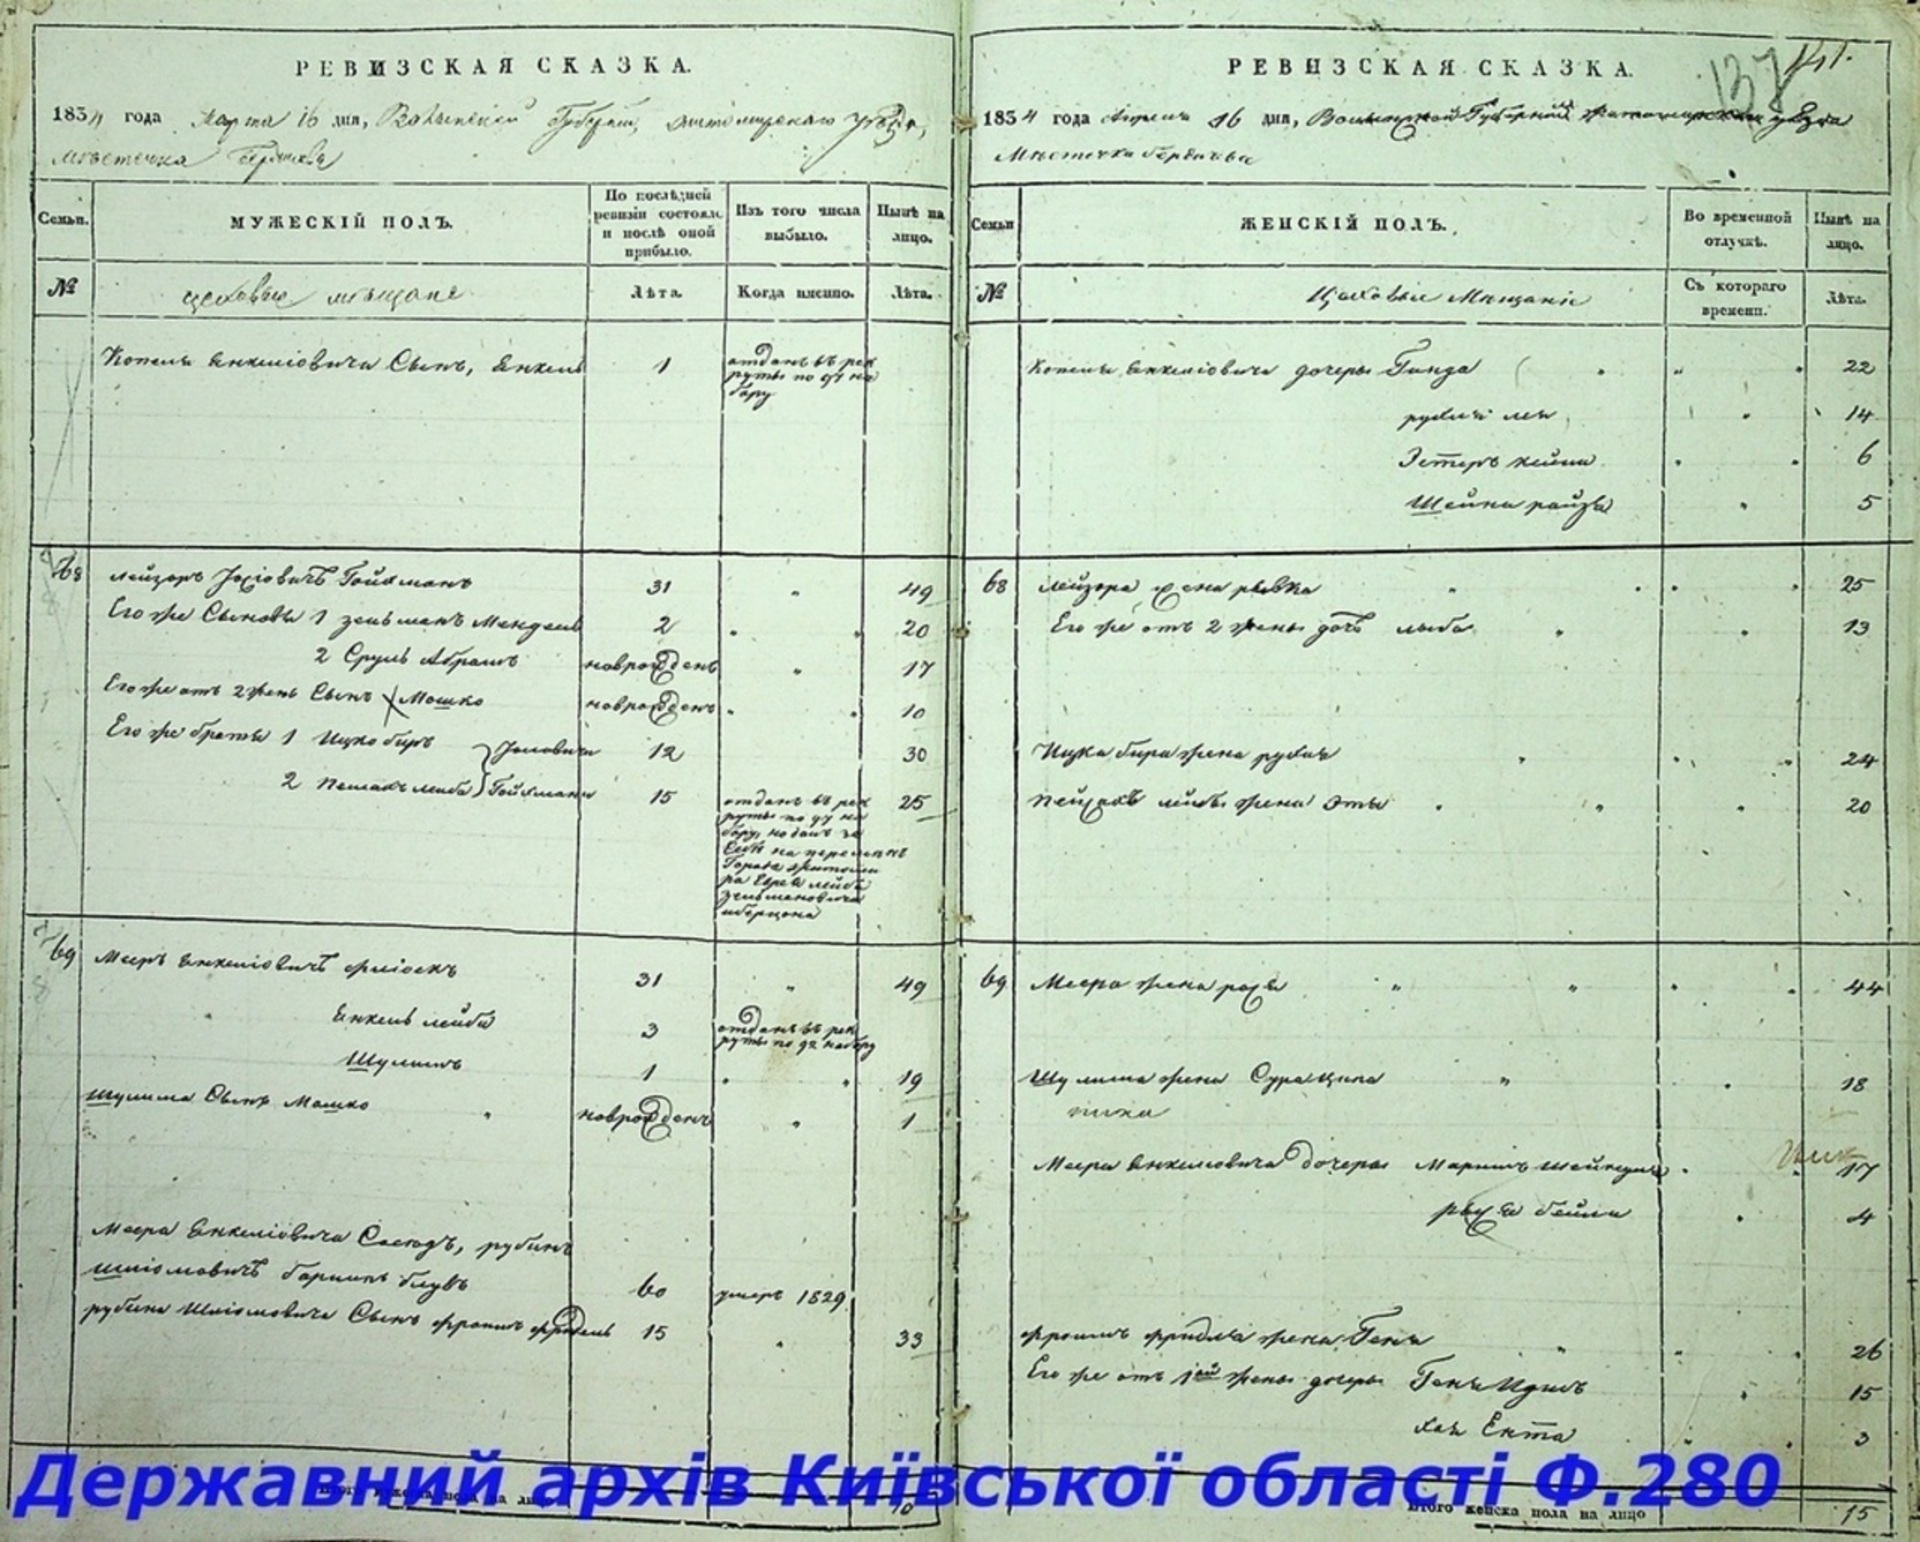 РЕВИЗСКАЯ СКАЗКА.
1834 года Марта 16 дня, Волынской Губернии, Житомирского уезда,
Местечка Бердичева
Семьи.
МУЖЕСКІЙ ПОЛЪ.
По послѣдней ревизіи состояло и послѣ оной прибыло.
Изъ того числа выбыло.
Нынѣ на лицо.
№
цеховые мещане
Лѣта.
Когда именно.
Лѣта.
Копеля Янкеліовича Сынъ, Янкель 1 отданъ въ рек
руты по 94 на
бору
68 Лейзоръ Іосіовичъ Гойхманъ 31 " 49
Его же Сыновья 1 Зельманъ Мендель 2 " " 20
2 Сруль Абрамъ новрожденъ " 17
Его же отъ 2 жены Сынъ Мошко новрожденъ " " 10
Его же братья 1 Ицко Беръ 12 30
2 Пейсахъ Лейба Гойхманы 15 отданъ въ рек 25
руты по 94 на
бору,
Зельмановича
69 Мееръ Янкеліовичъ 31 " 49
" Янкель Лейба 3 отданъ въ рек
руты по 92 набору
Шулимъ 1 " " 19
Шулима Сынъ Мошко " новрожденъ " 1
Меера Янкеліовича Соседъ, Рубинъ
Шліомовичъ 60 умеръ 1829
Рубина Шліомовича Сынъ Фроимъ Фридель 15 " 33
Итого мужска пола на лицо 10
РЕВИЗСКАЯ СКАЗКА.
137
1834 года Апреля 16 дня, Волынской Губерніи Житомирскаго уезда
Местечка Бердичева
Семьи
ЖЕНСКІЙ ПОЛЪ.
Во временной отлучкѣ.
Нынѣ на лицо.
№
Цеховые Мещане
Съ котораго времени.
Лѣта.
Копеля Янкеліовича дочери Гинда " " 22
Рухля Лея " 14
Эстеръ Хейна " " 6
Шейна Райза " 5
68 Лейзора жена Рывка " " " " 25
Его же отъ 2 жены дочь Лыба " " 13
Ицка Бера жена Рухля " " " 24
Пейсахъ Лейбы жена Эты " " " 20
69 Меера жена Рося " " " " 44
Шулима жена Сура Ципа " " 18
Меера Янкеліовича дочери Маріимъ Шейндля " " 17
Рыся Бейла " 4
Фроимъ Фридля жена Геня " " " 26
Его же отъ 1ой жены дочери Геня Идись " 15
Хая Ента " " 3
Итого женска пола на лицо 15
Державний архів Київської області Ф.280